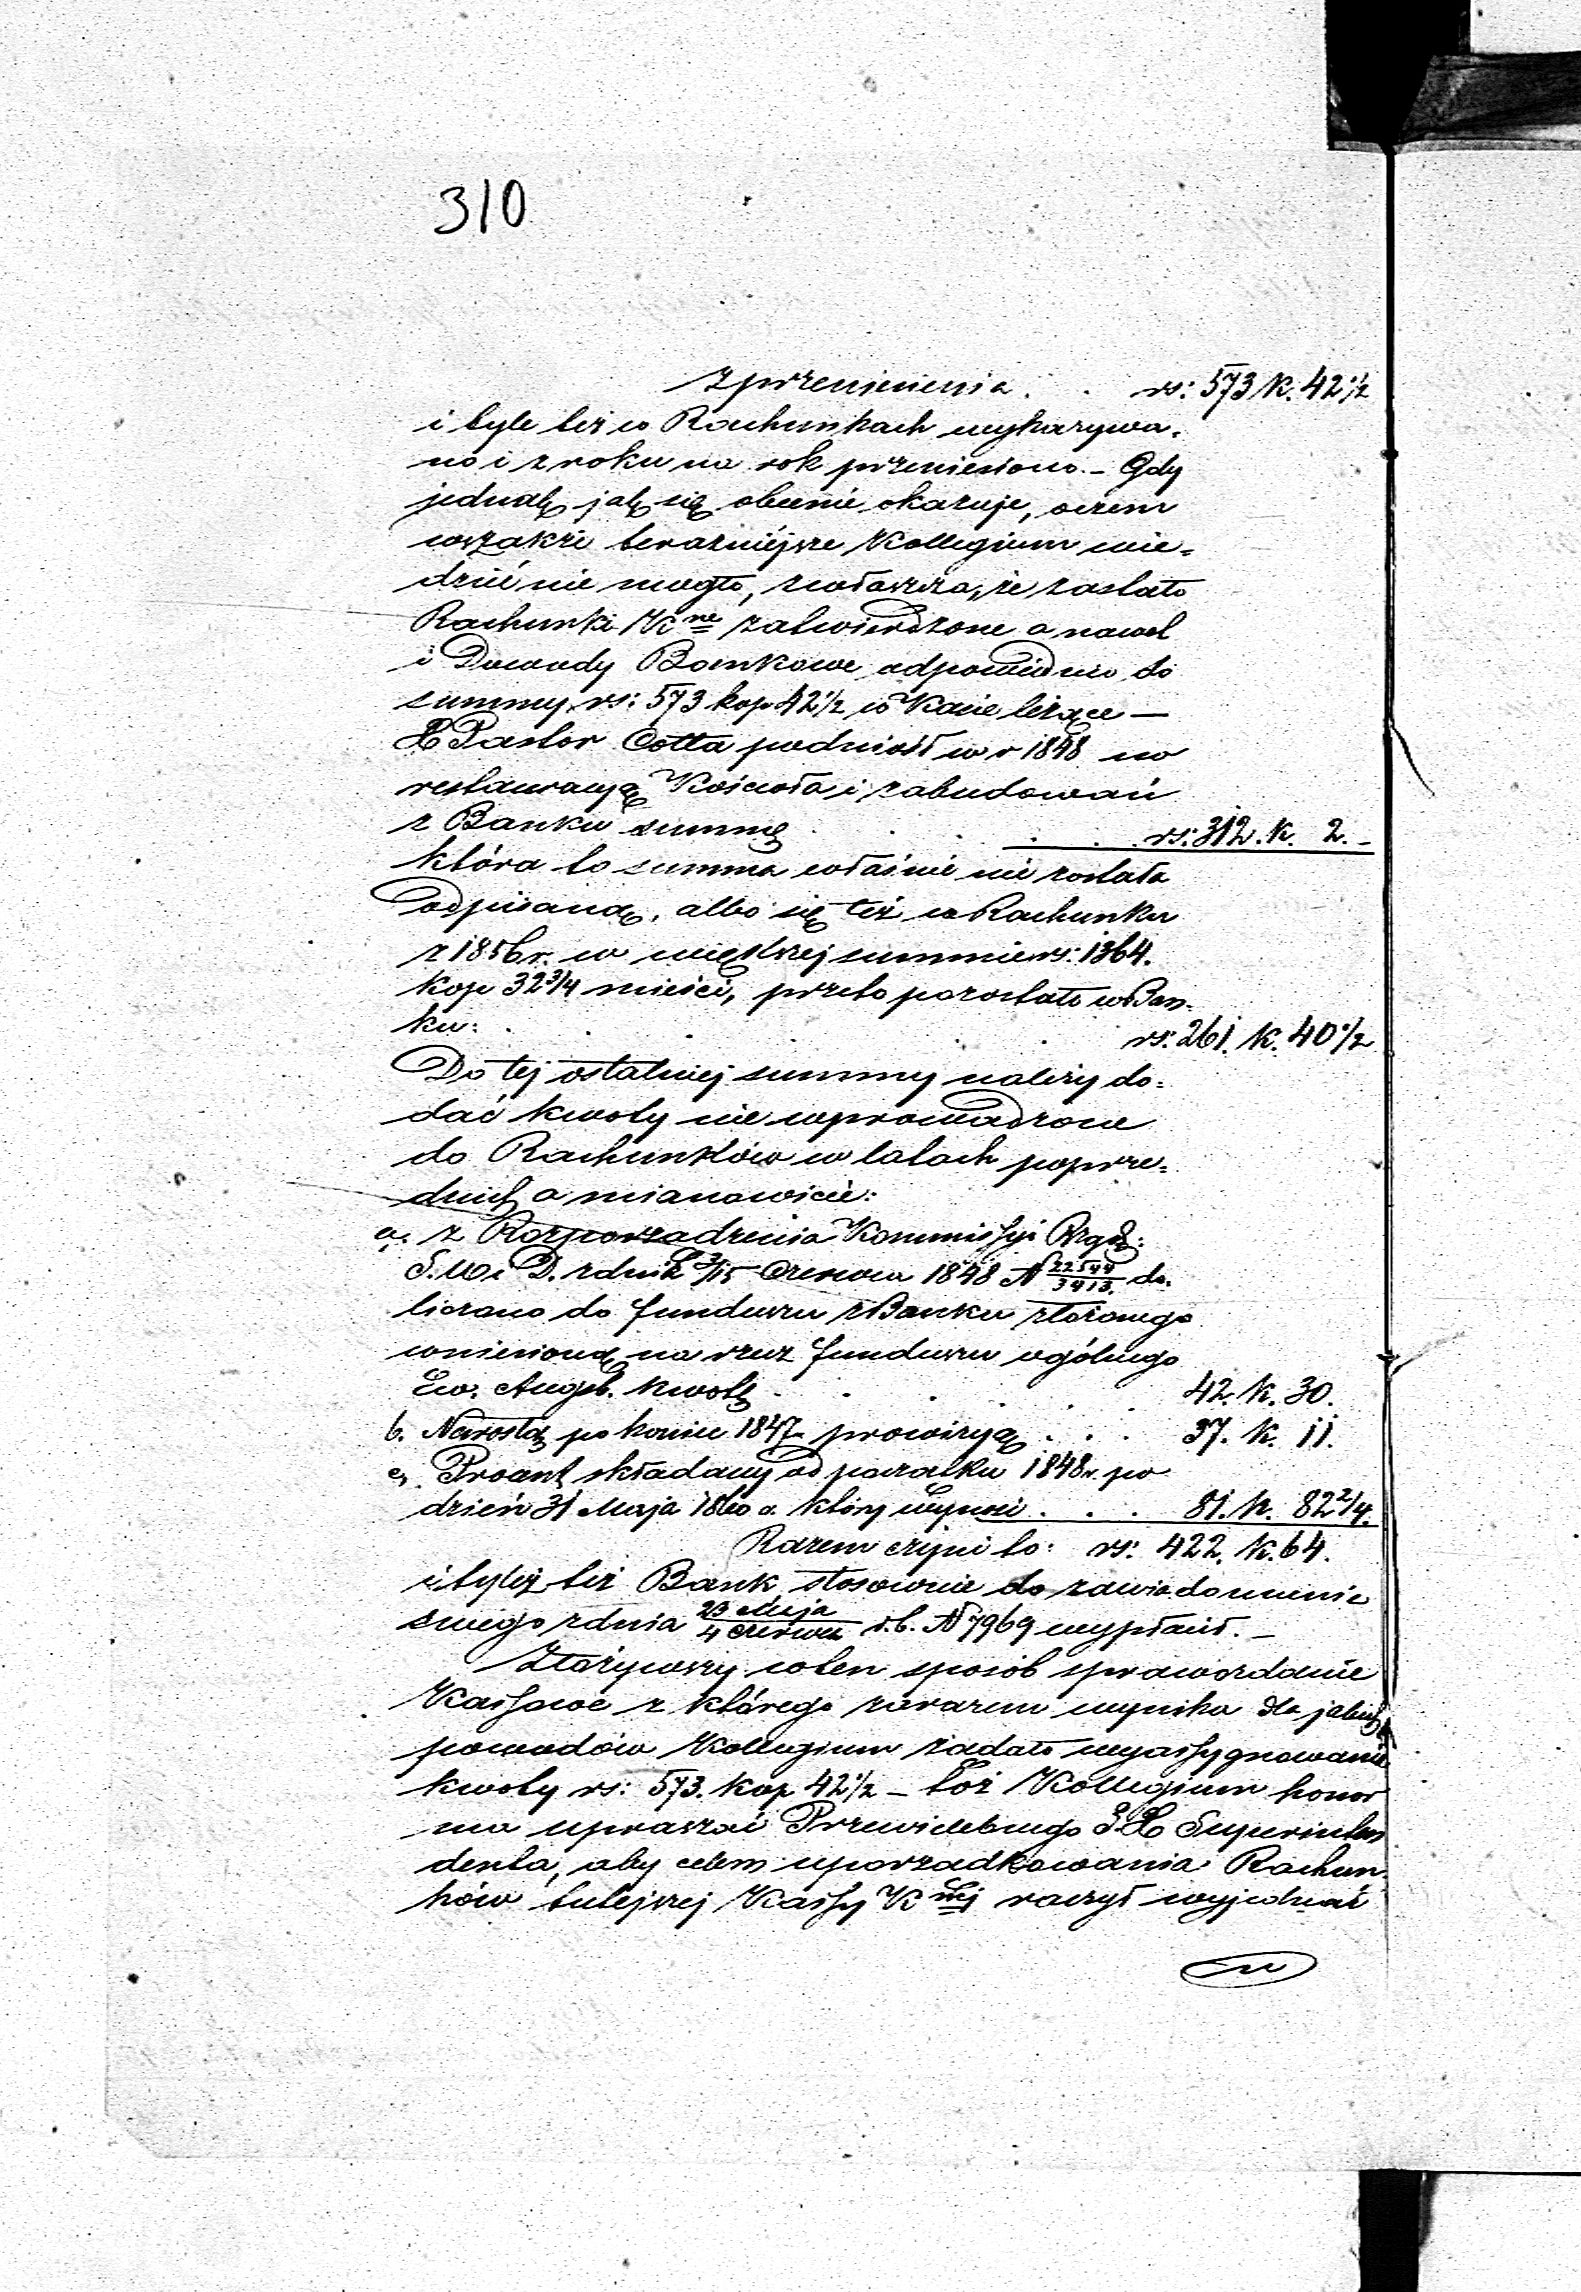 310
Z przeniesienia . . rs: 573 k. 42 1/2
i tyle też w Rachunkach wykazywa-
no i z roku na rok przeniesiono. – Gdy
jednak, jak się obecnie okazuje, oczem
wszakże teraźniejsze Kollegium wie-
dzieć nie mogło, zwłaszcza, że zastało
Rachunki K ne zatwierdzone a nawet
i Dowody Bankowe odpowiednio do
summy rs: 573 kop 42 1/2 w Kasie leżące –
X Pastor Cotta podniósł w r 1848 na
restauracyą Kościoła i zabudowań
z Banku summę . . . . rs: 312. k. 2. –
która to summa właśnie nie została
odpisaną, albo się też w Rachunku
z 1856 r. w większej summie rs: 1364.
kop 32 3/4 mieści, przeto pozostało w Ban-
ku: . . . . . rs: 261. k. 40 1/2
Do tej ostatniej summy należy do-
dać kwoty nie wprowadzone
do Rachunków w latach poprze-
dnich a mianowicie:
a. z Rozporządzenia Kommissyi Rząd:
S. W i D. z dnia 3/15 Czerwca 1848 N 22544/3413. do-
liczono do funduszu z Banku złożonego
wniesioną na rzecz funduszu ogólnego
Ew. Augsb. kwotę . . . . . 42. k. 30.
b. Narosłą po koniec 1847 prowizyą . . . 37. k. 11.
c, Procent składany od początku 1848 r. po
dzień 31 Maja 1860 a. który wynosi . . . 81. k. 82 2/4.
Razem czyni to: rs: 422. k. 64.
i tyleż też Bank stosownie do zawiadomienia
swego z dnia 23 Maja/4 Czerwca r. b. N 7969 wypłacił. –
Złożywszy w ten sposób sprawozdanie
Kassowe z którego zarazem wynika dla jakich
powodów Kollegium żądało wyassygnowania
kwoty rs: 573. kop 42 1/2 – toż Kollegium honor
ma upraszać Przewielebnego J. X Superinten
denta, aby celem uporządkowania Rachun-
ków tutejszej Kassy K nej raczył wyjednać